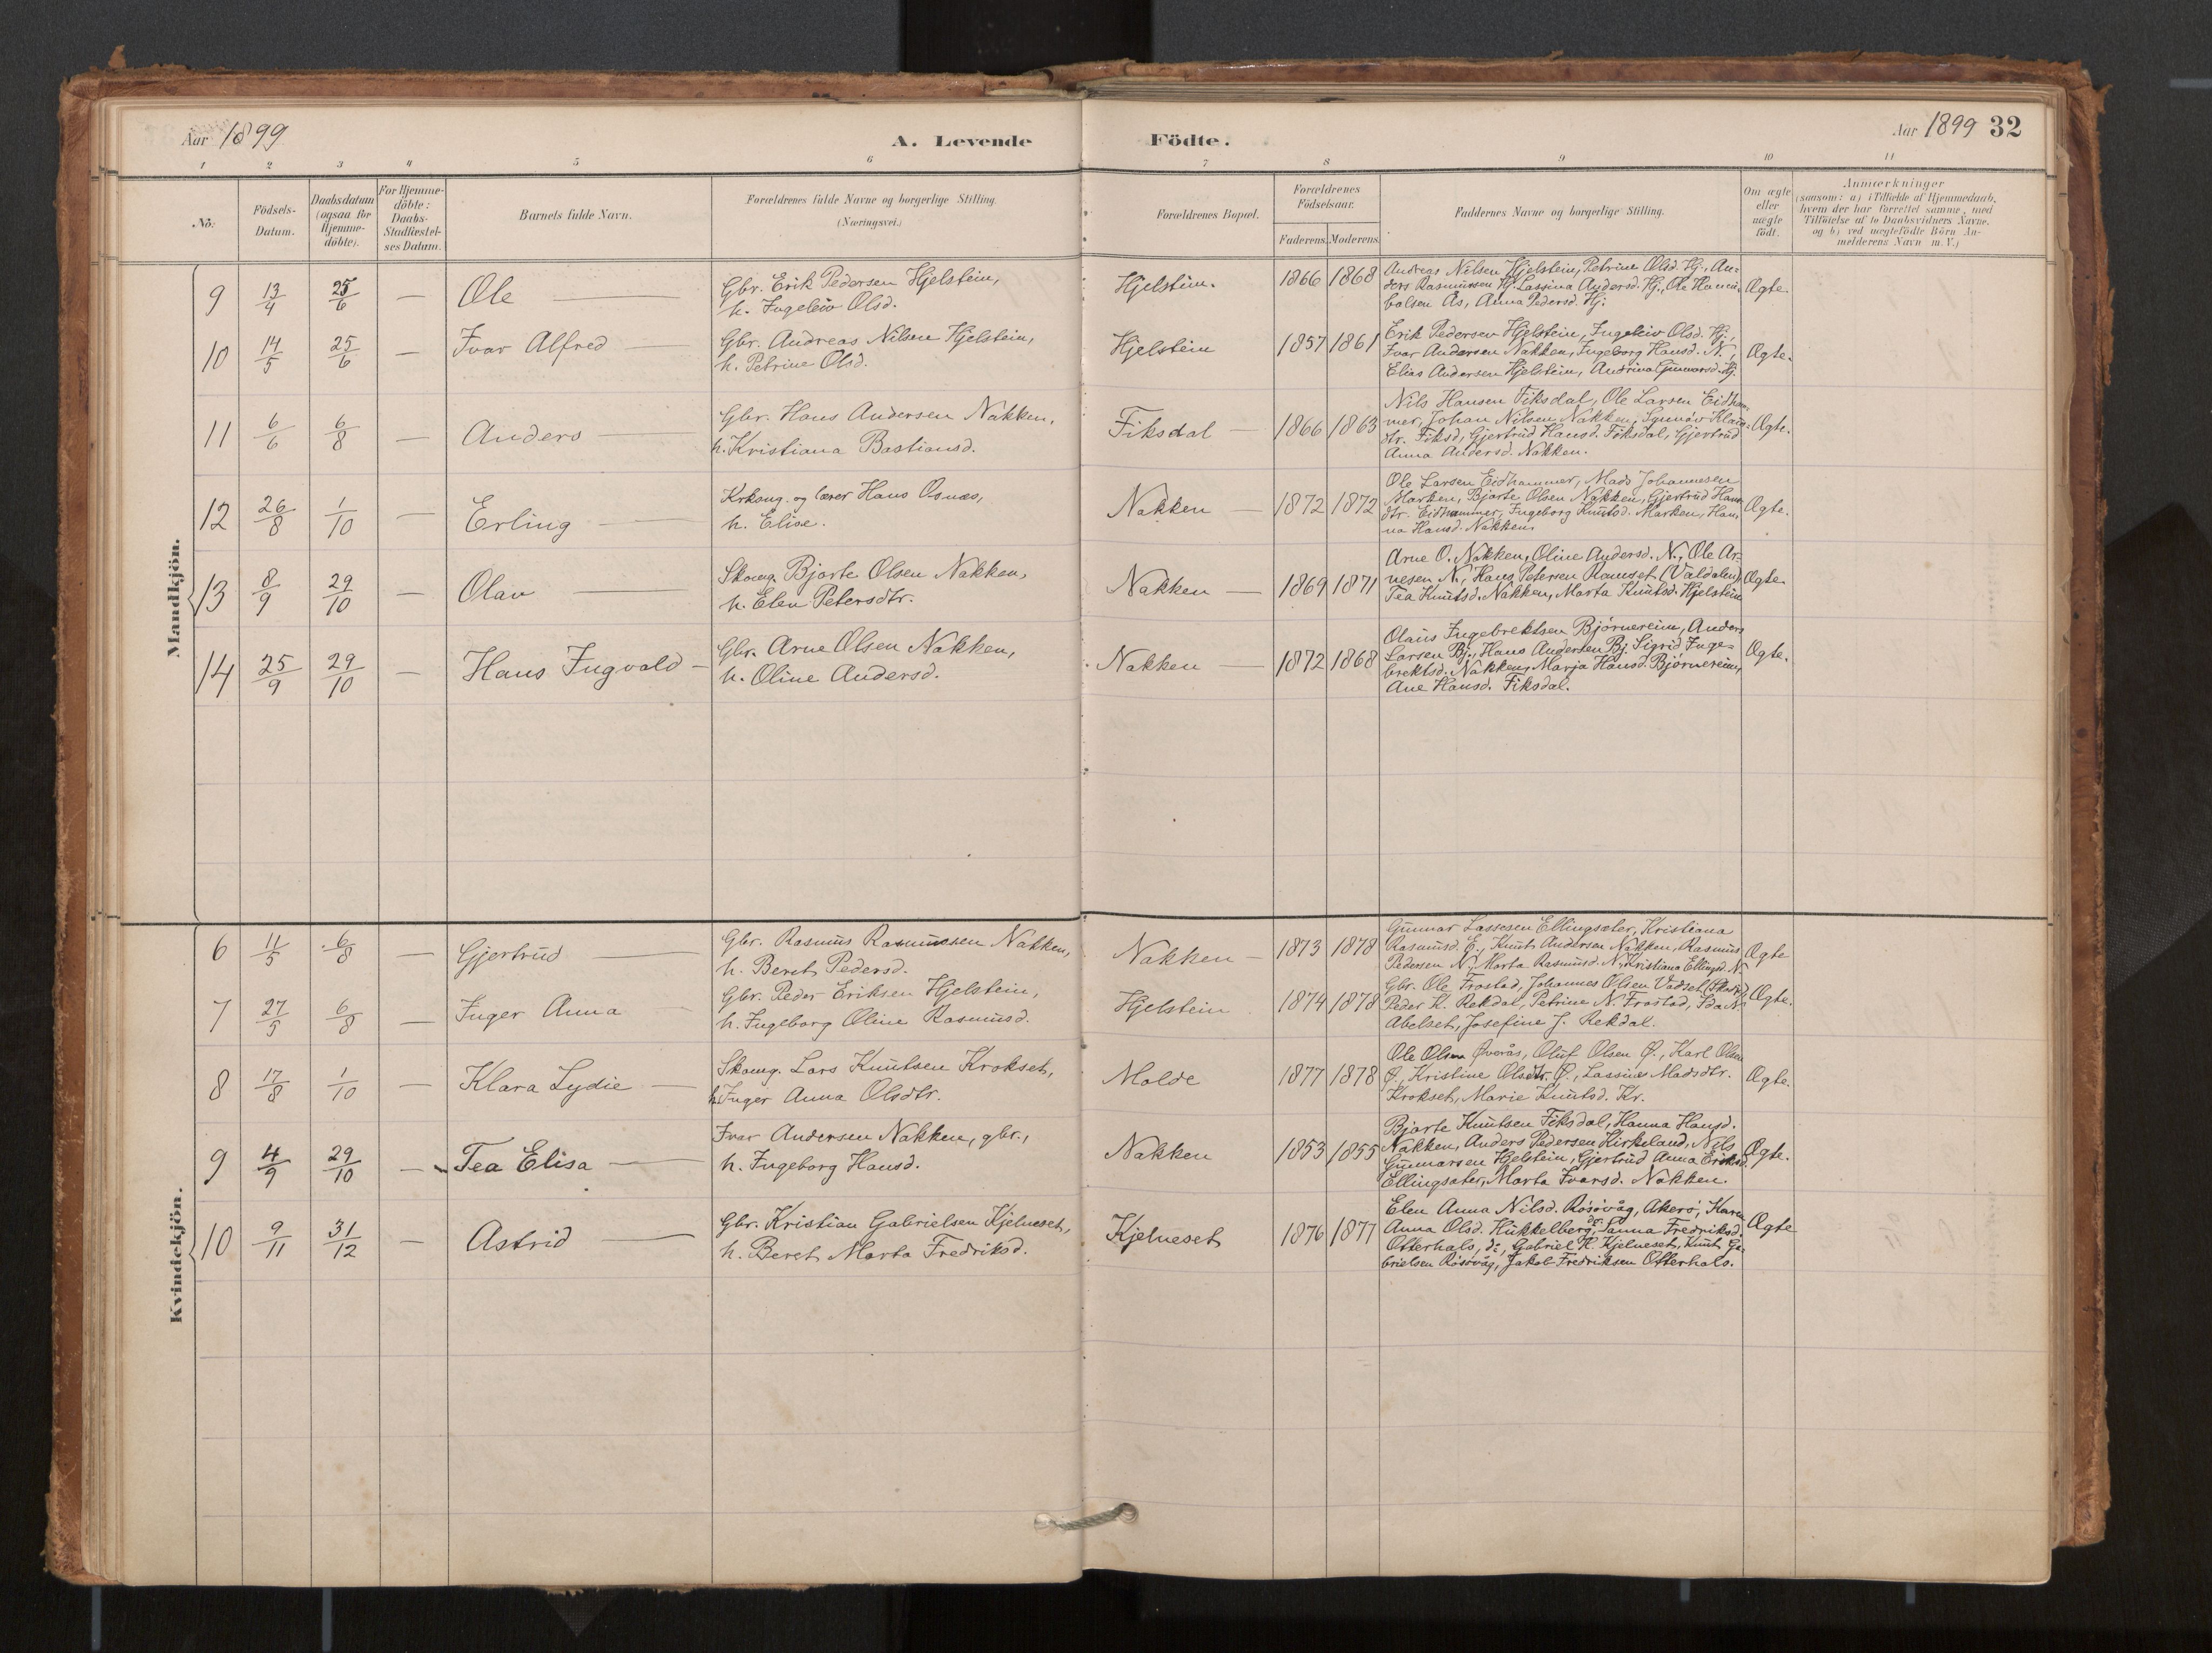 Aar 1899
A. Levende
Födte.
Aar 1899 32
1 2 3 4 5 6 7 8 9 10 11
No:
Födsels-
Datum.
Daabsdatum
(ogsaa for
Hjemme-
döbte).
For Hjemme-
döbte:
Daabs-
Stadfæstel-
ses Datum.
Barnets fulde Navn.
Forældrenes fulde Navne og borgerlige Stilling.
(Næringsvei.)
Forældrenes Bopæl.
Forældrenes
Födselsaar.
Faderens. Moderens.
Faddernes Navne og borgerlige Stilling.
Om ægte
eller
uægte
födt.
Anmærkninger
(saasom: a) i Tilfælde af Hjemmedaab,
hvem der har forrettet samme, med
Tilföielse af to Daabsvidners Navne,
og b) ved uægtefödte Börn An-
melderens Navn m. V.)
Mandkjön.
9 13/4 25/6 — Ole —
Gbr. Erik Pedersen Hjelstein,
h. Ingeleiv Olsd.
Hjelstein. 1866 1868
Andreas Nilsen Hjelstein, Petrine Olsd. Hj., An=
ders Rasmussen Hj. Lassina Andersd. Hj., Ole Hanni
balsen Ås, Anna Pedersd. Hj.
Ægte.
10 14/5 25/6 — Ivar Alfred —
Gbr. Andreas Nilsen Hjelstein,
h. Petrine Olsd.
Hjelstein 1857 1861
Erik Pedersen Hjelstein, Ingeleiv Olsd. Hj.,
Ivar Andersen Nakken, Ingeborg Hansd. N.,
Elias Andersen Hjelstein, Andrina Gunnarsd. Hj.
Ægte.
11 6/6 6/8 — Anders —
Gbr. Hans Andersen Nakken,
h. Kristiana Bastiansd.
Fiksdal — 1866 1863
Nils Hansen Fiksdal, Ole Larsen Eidham
mer, Johan Nilsen Nakken, Synnøv
dtr. Fiksd, Gjertrud Hansd. Fiksdal, Gjertrud
Anna Andersd. Nakken.
Ægte.
12 26/8 1/10 — Erling —
Krksng. og lærer Hans Osnæs,
h. Elise.
Nakken — 1872 1872
Ole Larsen Eidhammer, Mads Johannesen
Marken, Bjarte Olsen Nakken, Gjertrud Hans
dtr. Eidhammer, Ingeborg Knutsd. Marken, Han
na Hansd. Nakken.
Ægte.
13 8/9 29/10 — Olav —
Skomg. Bjarte Olsen Nakken,
h. Elen Petersdtr.
Nakken — 1869 1871
Arne O. Nakken, Oline Andersd. N., Ole Ar=
nesen N., Hans Petersen Ramset (Valdalen)
Tea Knutsd. Nakken, Marta Knutsd. Hjelstein
Ægte.
14 25/9 29/10 — Hans Ingvald —
Gbr. Arne Olsen Nakken,
h. Oline Andersd.
Nakken — 1872 1868
Olaus Ingebrektsen Bjørnereim, Anders
Larsen Bj., Hans Andersen Bj. Sigrid Inge=
brektsd. Nakken, Marja Hansd. Bjørnereim,
Ane Hansd. Fiksdal.
Ægte.
Kvindekjön.
6 11/5 6/8 — Gjertrud —
Gbr. Rasmus Rasmussen Nakken,
h. Beret Pedersd.
Nakken — 1873 1878
Gunnar Lassesen Ellingsæter, Kristiana
Rasmusd. E., Knut Andersen Nakken, Rasmus
Pedersen N., Marta Rasmusd. N., Kristiana Ellingsd. N.
Ægte
7 27/5 6/8 — Inger Anna —
Gbr. Peder Eriksen Hjelstein,
h. Ingeborg Oline Rasmusd.
Hjelstein 1874 1878
Gbr. Ole Frostad, Johannes Olsen Vadset
Peder K. Rekdal, Petrine N. Frostad, Ida N.
Abelset, Josefine J. Rekdal.
Ægte.
8 17/8 1/10 — Klara Lydie —
Skomg. Lars Knutsen Krokset,
h. Inger Anna Olsdtr.
Molde 1877 1878
Ole Olsen Øverås, Oluf Olsen Ø., Karl Olsen
Ø., Kristine Olsdtr. Ø., Lassine Madsdtr.
Krokset, Marie Knutsd. Kr.
Ægte.
9 4/9 29/10 — Tea Elisa —
Ivar Andersen Nakken, gbr.,
h. Ingeborg Hansd.
Nakken 1853 1855
Bjarte Knutsen Fiksdal, Hanna Hansd.
Nakken, Anders Pedersen Hirkeland, Nils
Gunnarsen Hjelstein, Gjertrud Anna Eriksd.
Ellingsæter, Marta Ivarsd. Nakken.
Ægte.
10 9/11 31/12 — Astrid —
Gbr. Kristian Gabrielsen Kjelneset,
h. Beret Marta Fredriksd.
Kjelneset 1876 1877
Elen Anna Nilsd. Røsøvåg, Akerø, Karen
Anna Olsd. Hukkelberg, do. Janna Fredriksd.
Otterhals, do, Gabriel K. Kjelneset, Knut Ga
brielsen Røsøvåg, Jakob Fredriksen Otterhals.
Ægte